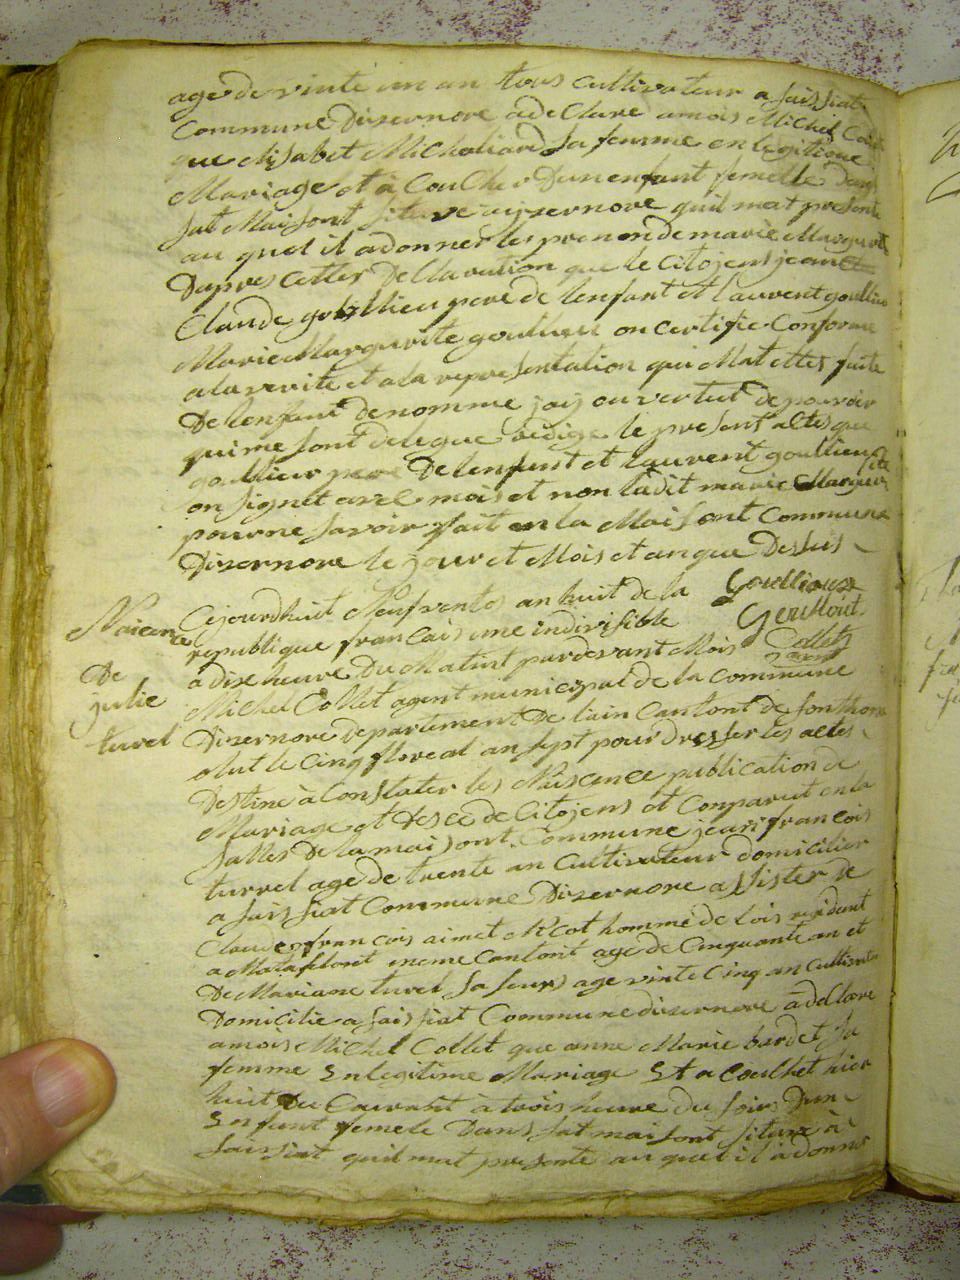 age de vinte un an tous cultivateur a saissiat
Commune Disernore a de Clare a mois Michel Coll
que Elisabet Micholiard sa femme en legitime
Mariage et à Coucher Dun enfant femelle dans
sat Maisont situee a ysernore quil mat presente
au quel il a donner les prenon de marie Margurite
Dapres cettes Declaration que le Citojens jean
Claude goullieu pere de lenfant et laurent goullieu
Marie Margurite goullieu on certifie Conforme
a la verite et a la representation qui Mat ettes faite
De lenfant denomme jaij en vertut de pouvoir
qui me sont delegue redige le present actes que
goullieu pere De lenfant et laurent goullieu
on signet avec mois et non ladit marie Margurite
pour ne savoir fait en la Maisont Commune
Disernore le jour et Mois et an que Dessus
Goullioux
Goullout
Collet
agent
Naicence
De
julie
turel
Cejourdhuit Neuf ventos an huit de la
republique francaise une indivisible
a dix heure Du Matint pardevant Mois
Michel Collet agent municipal de la Commune
Disernore Departement De lain Cantont de sonthona
elut le Cinq floreal an sept pour Dresser les actes
Destine à Constater les Naiscence publication de
Mariage et Desce de Citojens et Conparut en la
salles De la maisont Commune jean francois
turrel age de trente an Cultivateur domicilier
a saissiat Commune Disernore assister de
Claude francois aimet Nicot homme de lois residant
a Matafelont meme Cantont age de Cinquante an et
De Mariane turel sa seurs age vinte Cinq an Cultivateur
Domicilie a saissiat Commune disernore a declare
a mois Michel Collet que anne Marie bardet sa
femme En legitime Mariage Et a Couchet hier
huit Du Courant à trois heure Du soirs Dun
Enfant femele Dans sat maisont situee à
saissiat quil mat presente au quel il a donner